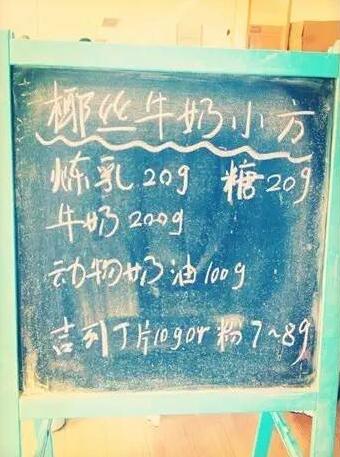 椰丝牛奶小方
炼乳20g 糖20g
牛奶200g
动物奶油100g
吉利丁片10gor粉7~8g